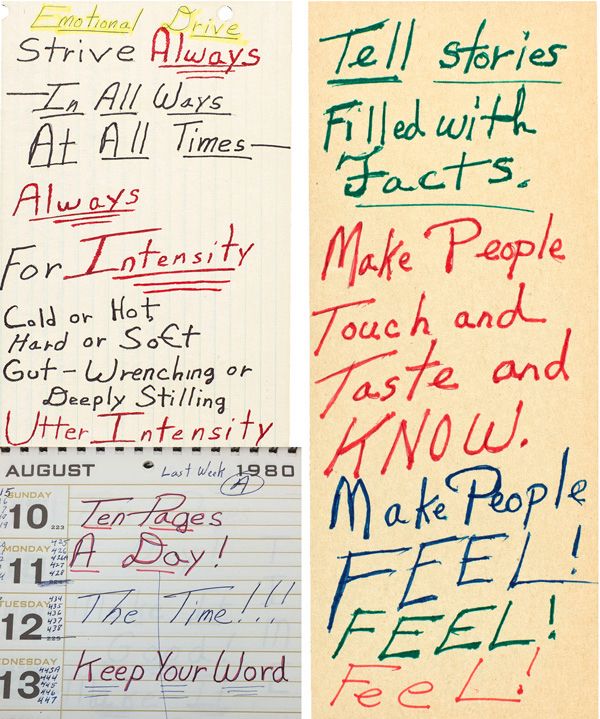 Emotional Drive
Strive Always
—In All Ways
At All Times—
Always
For Intensity
Cold or Hot,
Hard or Soft
Gut-Wrenching or
Deeply Stilling
Utter Intensity
AUGUST Last Week 1980
A
SUNDAY
10 223
Ten-Pages
MONDAY
A Day!
11
425
426
426A
427
428
TUESDAY
The Time!!!
12 225
434
435
436
437
438
WEDNESDAY
Keep Your Word
13
443A
444
445
446
447
Tell stories
Filled with
Facts.
Make People
Touch and
Taste and
KNOW.
Make People
FEEL!
FEEL!
FeeL!